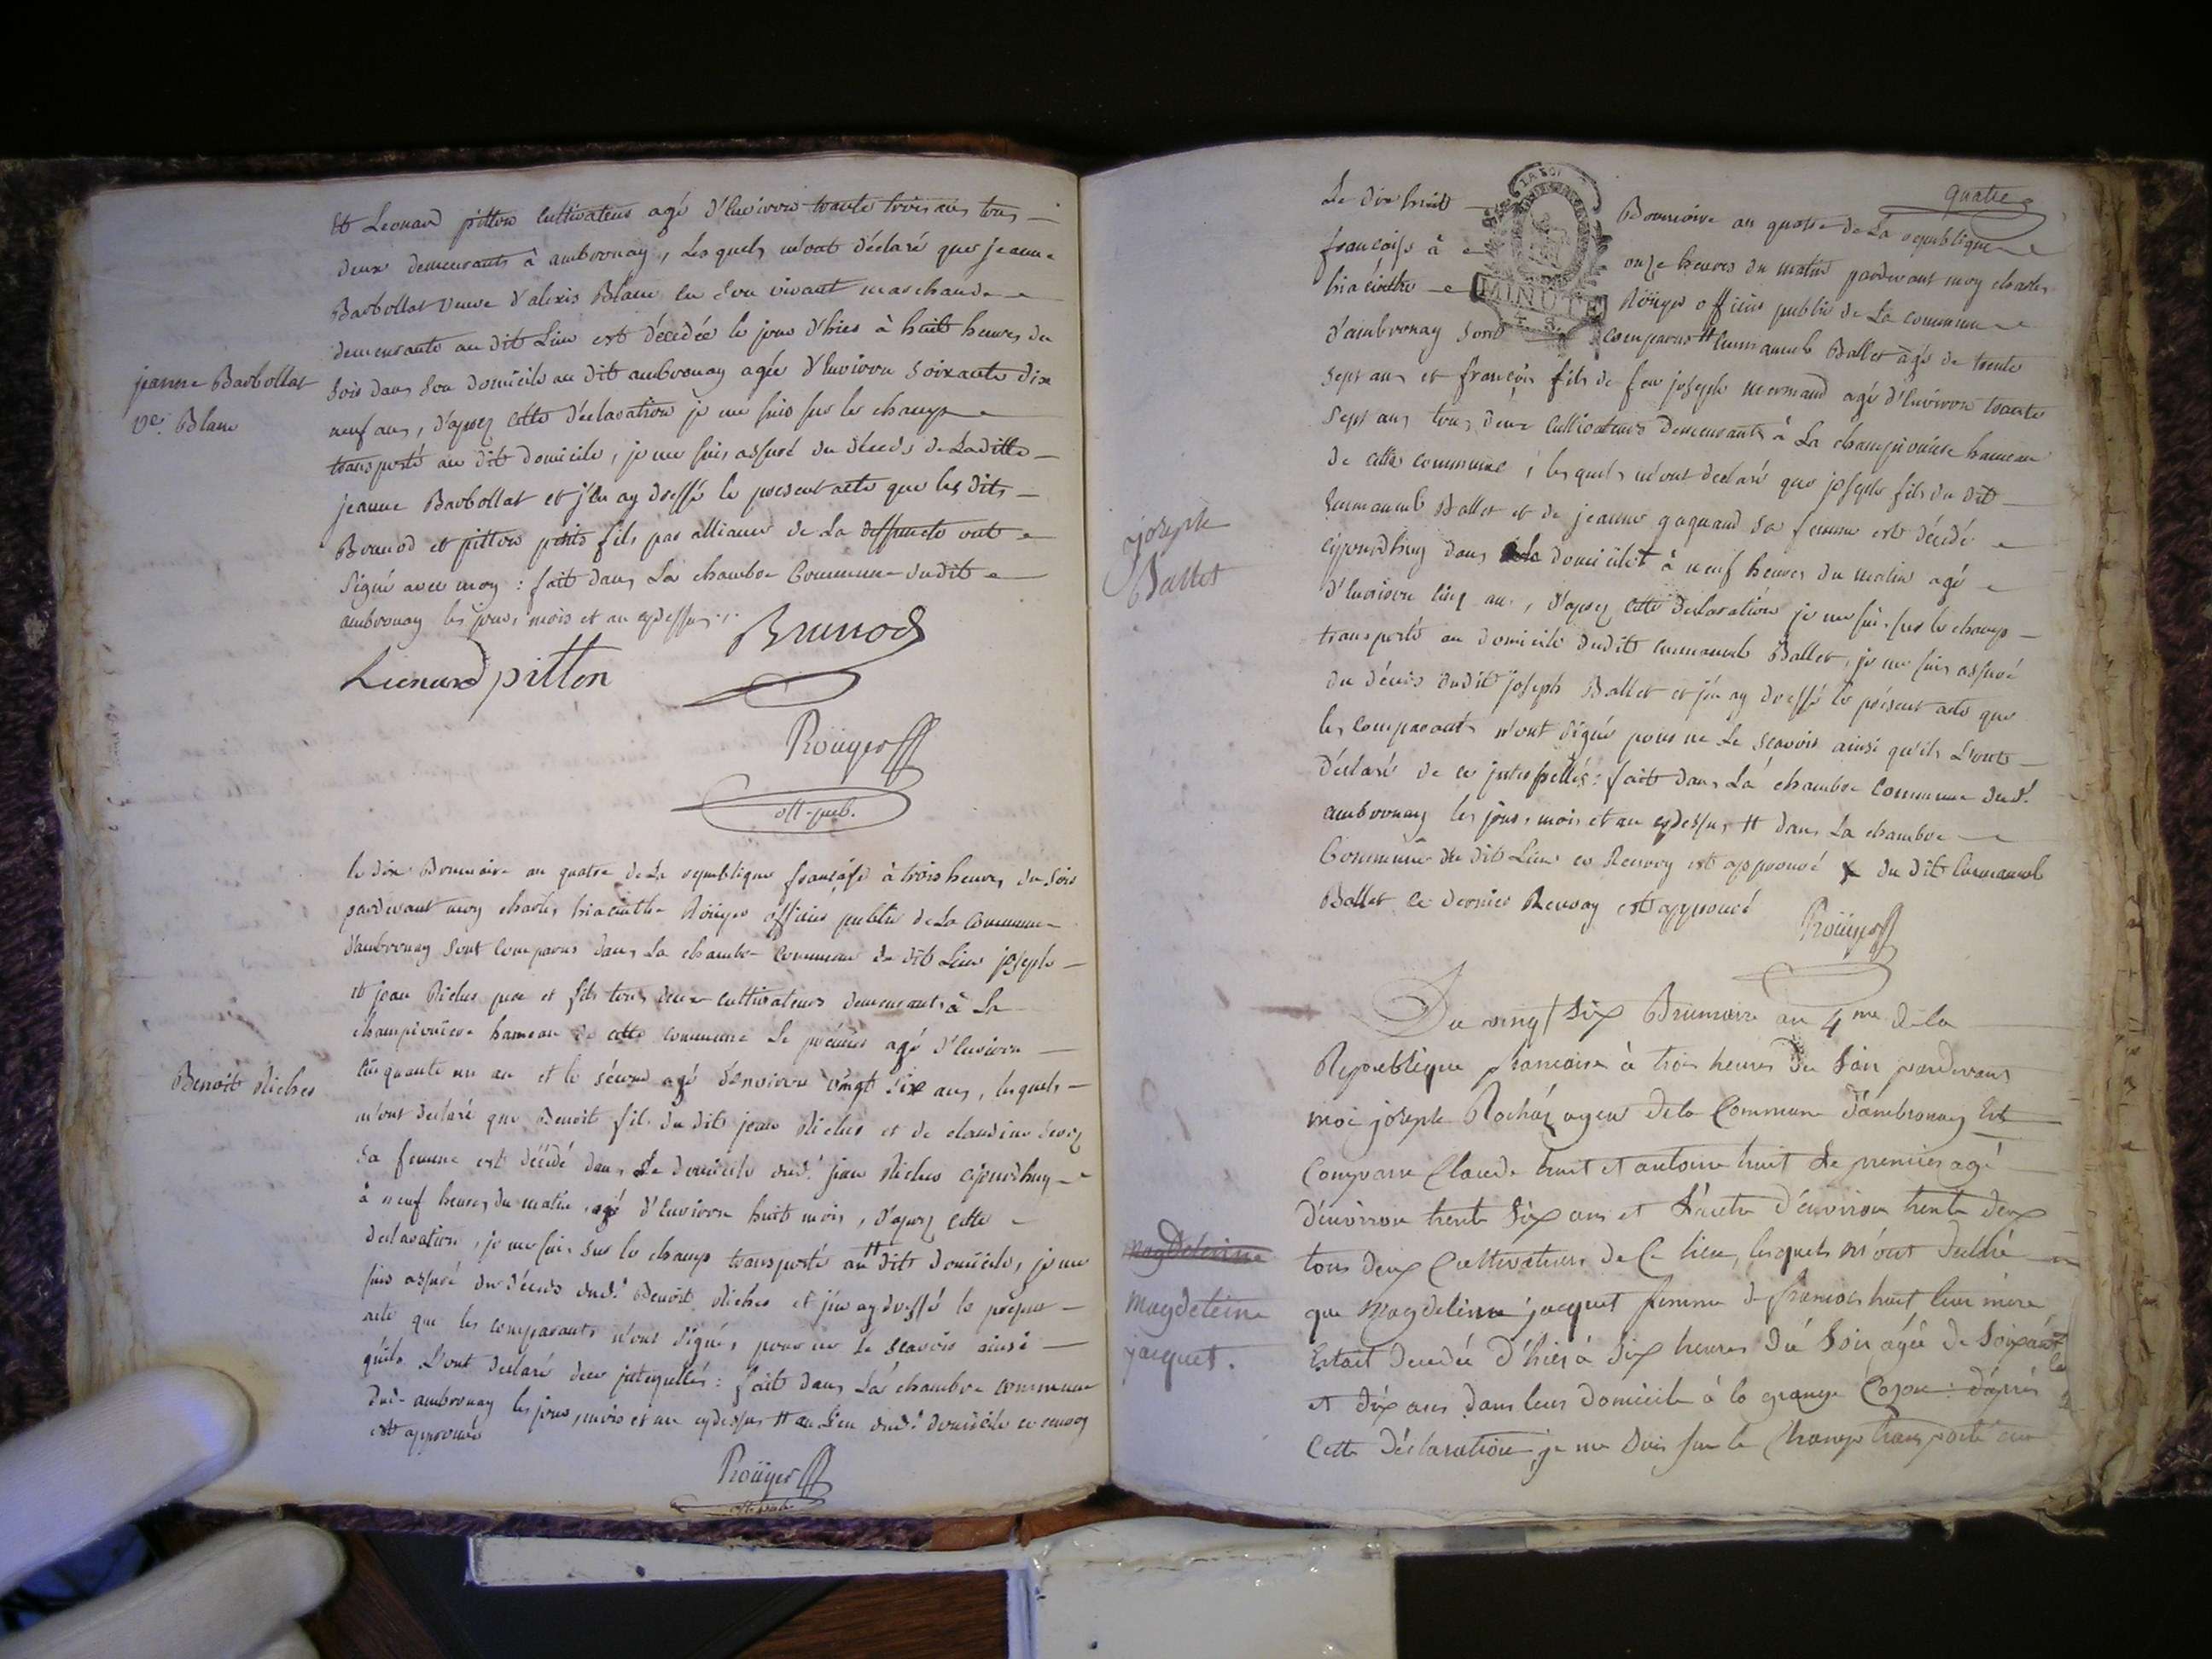 et Leonard pitton cultivateur agé d'environ trante trois ans tous
deux demeurants à ambronay, lesquels m'ont déclaré que jeanne
Barbollat veuve d'alexis Blanc en son vivant marchande
demeurante au dit Lieu est décédée le jour d'hier à huit heures du
soir dans son domicile au dit ambronay agée d'environ soixante dix
neuf ans, d'aprez cette déclaration je me suis sur le champ
transporté au dit domicile, je me suis assuré du décès de Laditte
jeanne Barbollat et j'en ay dressé le présent acte que les dits
Brunod et pitton petits fils par alliance de La deffuncte ont
signé avec moy : fait dans La chambre Commune dudit
ambronay les jour, mois et an cydessus
jeanne Barbollat
ve. Blanc
Brunod
Lienard pitton
Roüyer
off. pub.
le dix Brumaire an quatre de La republique française à trois heures du soir
pardevant moy charles hiacinthe Roüyer officier public de La commune
d'ambronay sont comparus dans La chambre commune du dit Lieu joseph
et jean Riches pere et fils tous deux cultivateurs demeurants à La
championiere hameau de cette commune Le premier agé d'environ
cinquante un an et le second agé d'environ vingt six ans, lesquels
m'ont declaré que Benoit fils du dit jean Riches et de claudine
sa femme est décédé dans Le domicile dud. jean Riches cejourdhuy
à neuf heures du matin, agé d'environ huit mois, d'aprez cette
declaration, je me suis sur le champ transporté au dit domicile, je me
suis assuré du décès dud. Benoit Riches et j'en ay dressé le present
acte que les comparants n'ont signés pour ne le scavoir ainsi
qu'ils L'ont declaré de ce interpellés : fait dans La chambre commune
dud. ambronay les jour, mois et an cydessus # au Lieu dud. domicile ce renvoy
est approuvé
Benoit Riches
Roüyer
off. pub.
quatre
Le dix huit Brumaire an quatre de La republique
française à onze heures du matin pardevant moy charles
hiacinthe Roüyer officier public de La commune
MINUTE
d'ambronay sont comparus # Emmanuel Ballet agé de trente
sept ans et françois fils de feu joseph mermand agé d'environ trante
sept ans tous deux cultivateurs demeurants à La championiere hameau
de cette commune, lesquels m'ont declaré que joseph fils du dit
Emmanuel Ballet et de jeanne gaquand sa femme est décédé
cejourdhuy dans le domicile à neuf heures du matin agé
d'environ cinq ans, d'aprez cette declaration je me suis sur le champ
transporté au domicile dudit emmanuel Ballet, je me suis assuré
du décès dudit joseph Ballet et j'en ay dressé le présent acte que
les comparants n'ont signé pour ne le scavoir ainsi qu'ils L'ont
déclaré de ce interpellés : fait dans La chambre Commune dud.
ambronay les jour, mois et an cydessus # dans La chambre
Commune du dit Lieu ce Renvoy est approuvé x du dit Emmanuel
Ballet ce dernier Renvoy est approuvé
joseph
Ballet
Roüyer
Du vingt six Brumaire an 4me de la
Republique francaise à trois heures du soir pardevant
moi joseph Rochaz agent de la Commune d'ambronay Est
Comparu Claude huit et antoine huit Le premier agé
d'environ trente six ans et L'autre d'environ trente deux
tous deux Cultivateurs de Ce lieu, lesquels m'ont declaré
que Magdeleine jacquet femme de francois huit leur mère
Estait decedée d'hier à six heures du soir agée de soixante
et dix ans dans leur domicile à la grange Cozon : d'après
Cette déclaration, je me suis sur le Champ transporté au
Magdeleine
Magdeleine
jacquet.